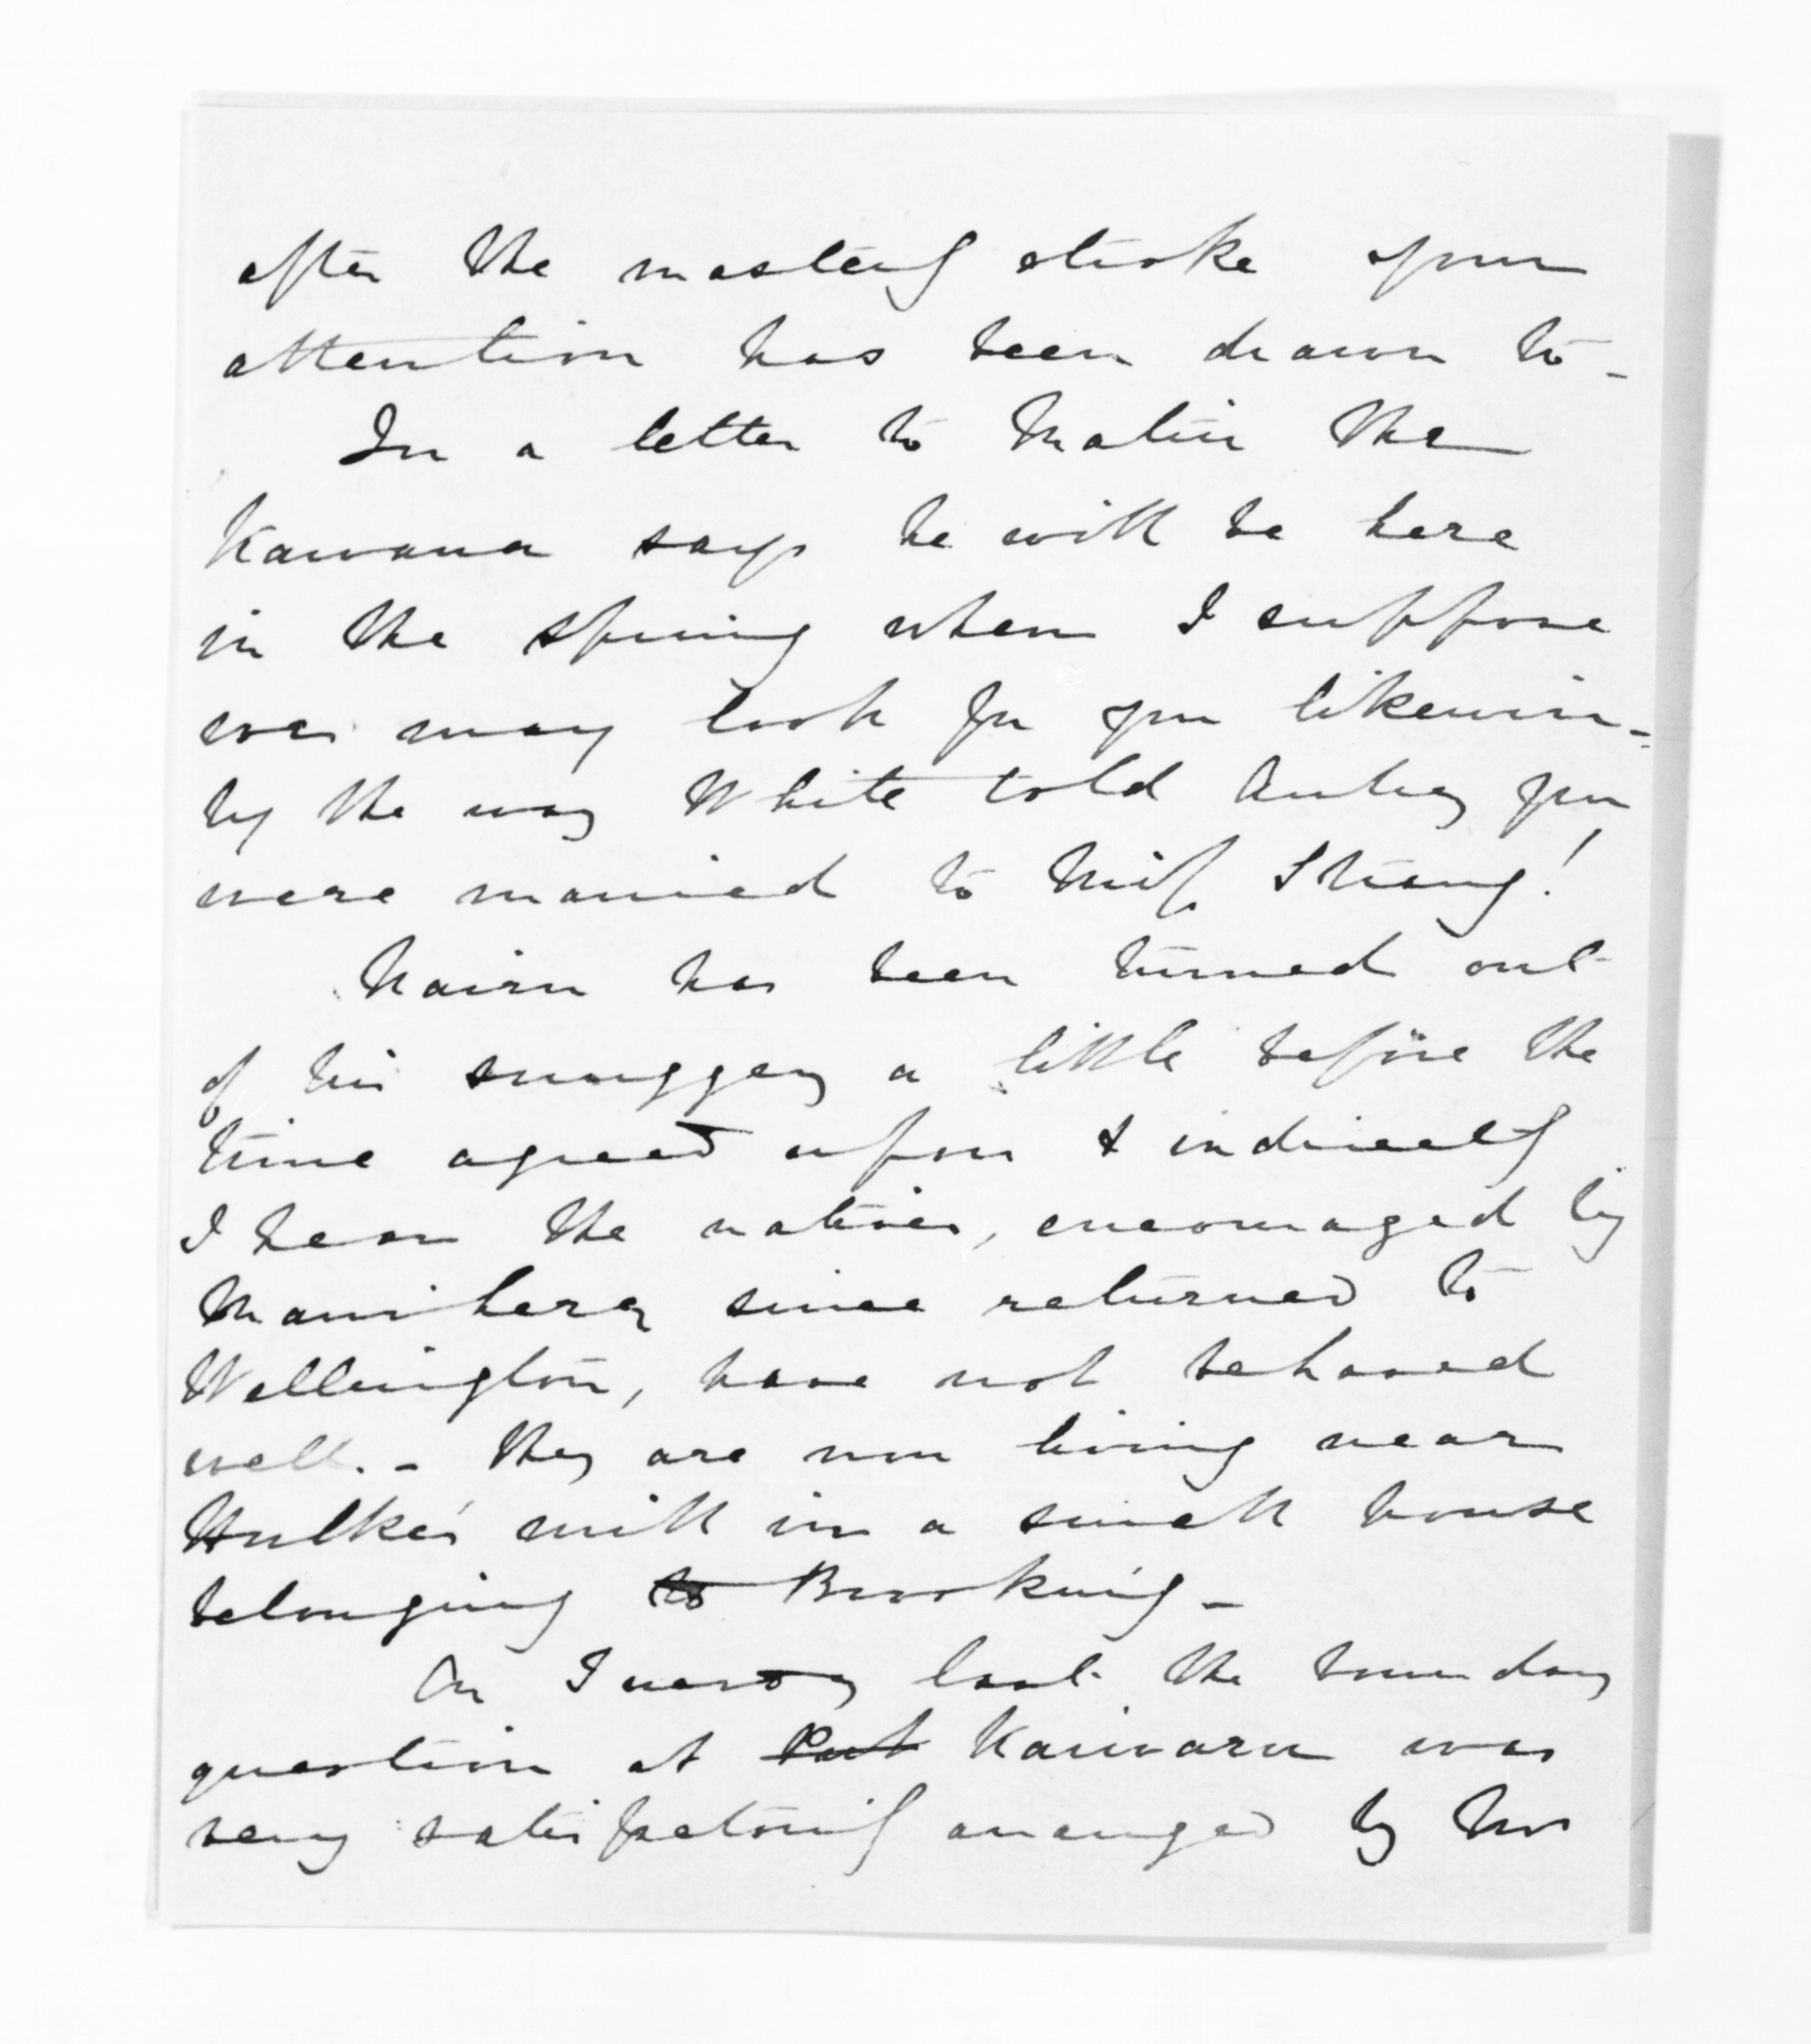 after the masterly stroke your
attention has been drawn to -
In a letter to Matiu the
Kawana says he will be here
in the spring when I suppose
we may look for you likewise -
by the way White told Aubrey you
were married to Miss Strang!
Nairn has been turned out
of his snuggery a little before the
time agreed upon & indirectly
I hear the natives, encouraged by
Manihera since returned to
Wellington, have not behaved
well. - they are now living near
Hulke's mill in a small house
belonging to Brooking -
On Tuesday last the boundary
question at Kaiwaru was
very satisfactorily arranged by